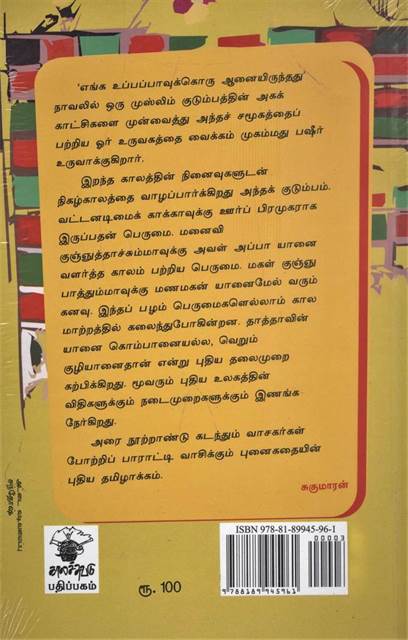 'எங்க உப்பப்பாவுக்கொரு ஆனையிருந்தது'
நாவலில் ஒரு முஸ்லிம் குடும்பத்தின் அகக்
காட்சிகளை முன்வைத்து அந்தச் சமூகத்தைப்
பற்றிய ஓர் உருவகத்தை வைக்கம் முகம்மது பஷீர்
உருவாக்குகிறார்.
இறந்த காலத்தின் நினைவுகளுடன்
நிகழ்காலத்தை வாழப்பார்க்கிறது அந்தக் குடும்பம்.
வட்டனடிமைக் காக்காவுக்கு ஊர்ப் பிரமுகராக
இருப்பதன் பெருமை. மனைவி
குஞ்ஞுத்தாச்சும்மாவுக்கு அவள் அப்பா யானை
வளர்த்த காலம் பற்றிய பெருமை. மகள் குஞ்ஞு
பாத்தும்மாவுக்கு மணமகன் யானைமேல் வரும்
கனவு. இந்தப் பழம் பெருமைகளெல்லாம் கால
மாற்றத்தில் கலைந்துபோகின்றன. தாத்தாவின்
யானை கொம்பானையல்ல, வெறும்
குழியானைதான் என்று புதிய தலைமுறை
கற்பிக்கிறது. மூவரும் புதிய உலகத்தின்
விதிகளுக்கும் நடைமுறைகளுக்கும் இணங்க
நேர்கிறது.
அரை நூற்றாண்டு கடந்தும் வாசகர்கள்
போற்றிப் பாராட்டி வாசிக்கும் புனைகதையின்
புதிய தமிழாக்கம்.
சுகுமாரன்
காலச்சுவடு
பதிப்பகம்
ரூ. 100
ISBN 978-81-89945-96-1
00003
9 788189 945961